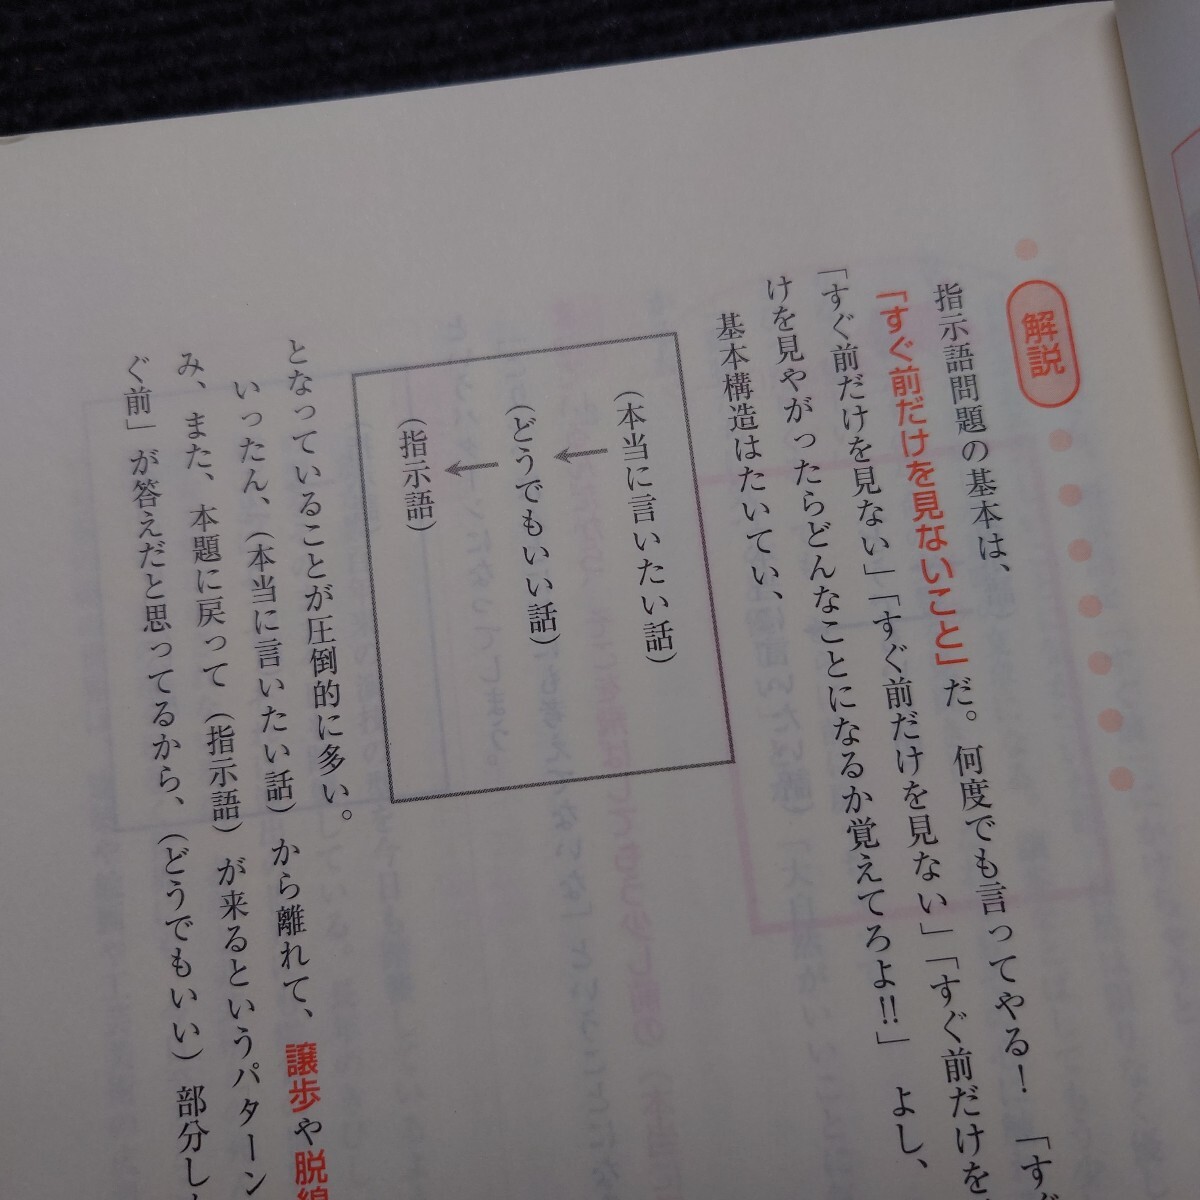 解説
指示語問題の基本は、
「すぐ前だけを見ないこと」だ。何度でも言ってやる！「すぐ
「すぐ前だけを見ない」「すぐ前だけを見ない」「すぐ前だけを
けを見やがったらどんなことになるか覚えてろよ!!」　よし、
基本構造はたいてい、
（本当に言いたい話）
←
（どうでもいい話）
←
（指示語）
となっていることが圧倒的に多い。
いったん、（本当に言いたい話）から離れて、譲歩や脱線
み、また、本題に戻って（指示語）が来るというパターン
ぐ前」が答えだと思ってるから、（どうでもいい）部分し